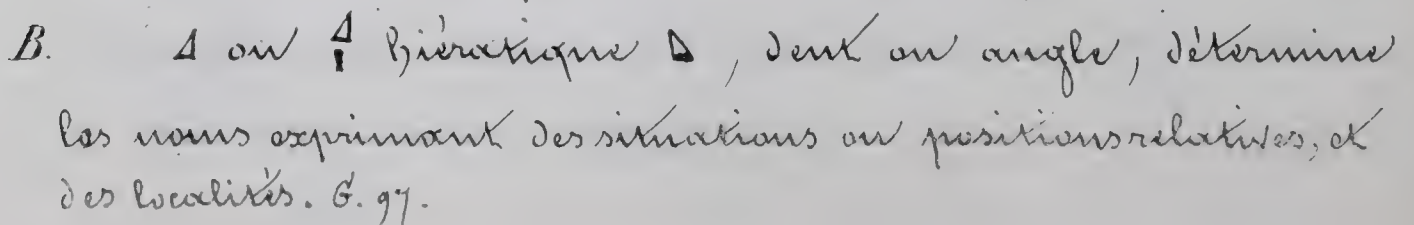 B. 𓈎 ou 𓈎𓏤 hiératique 𓈎, dent ou angle, détermine
les noms exprimant des situations ou positions relatives, et
des localités. G. 97.